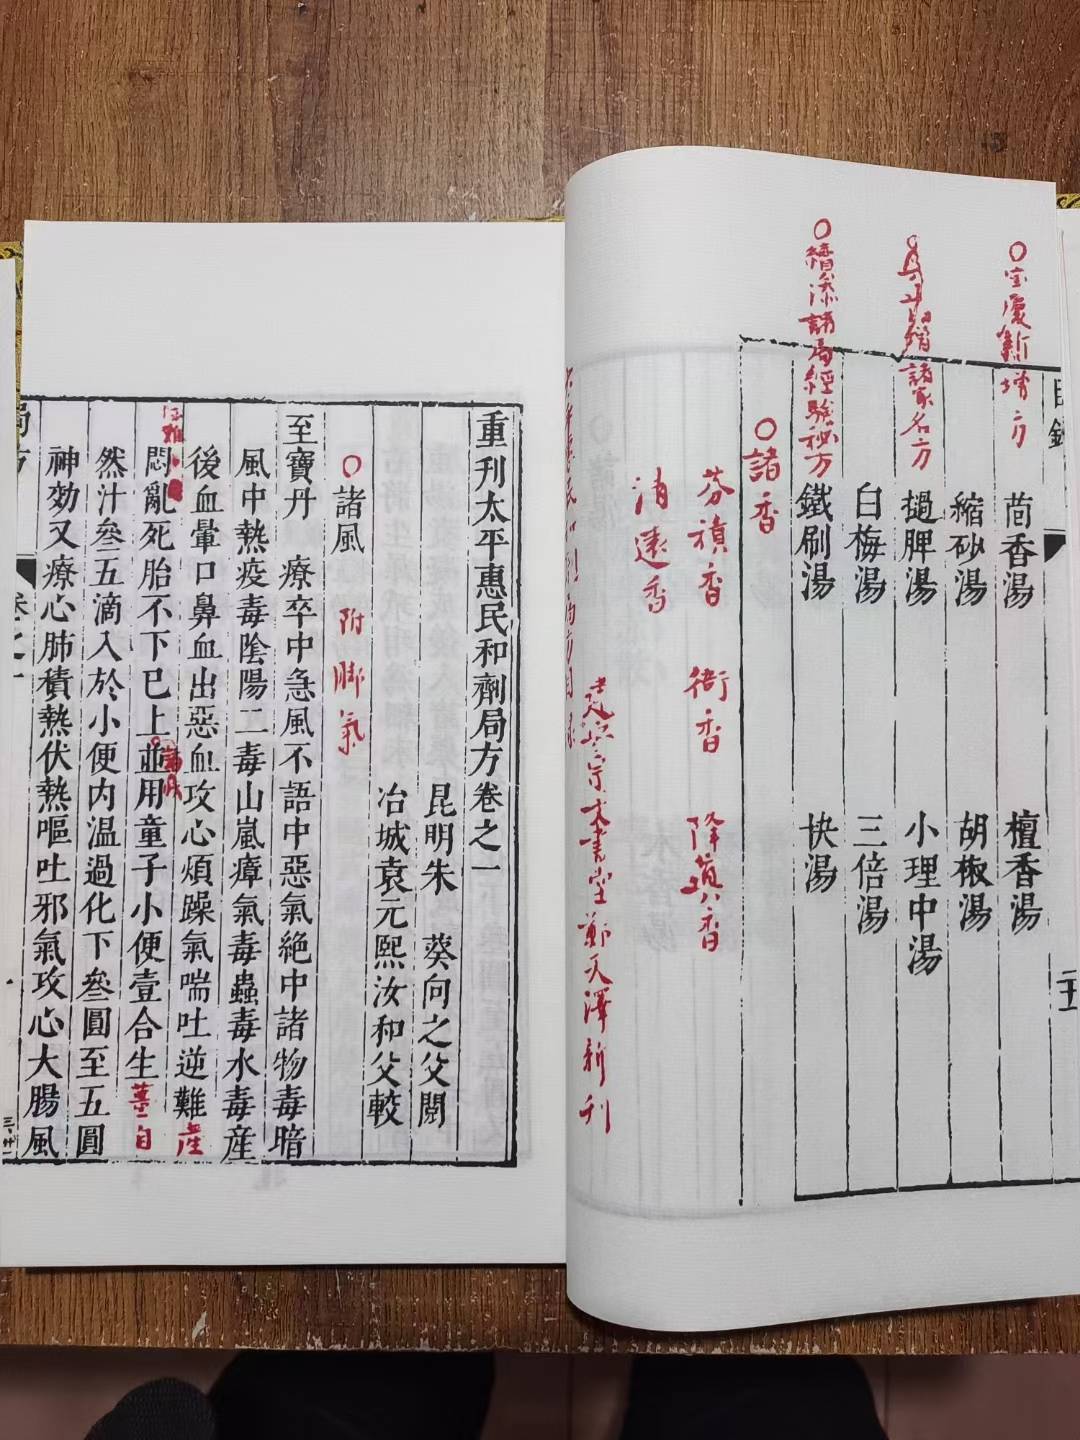 目錄
五
○宝慶新增方
茴香湯 檀香湯
縮砂湯 胡椒湯
諸家名方
撾脾湯 小理中湯
白梅湯 三倍湯
○續添諸局經驗秘方
鐵刷湯 快湯
○諸香
芬積香 衙香 降真香
清遠香
建安宗文書堂鄭天澤新刊
重刊太平惠民和劑局方卷之一
昆明朱 葵向之父閱
冶城袁元熙汝和父較
○諸風 附脚氣
至寶丹 療卒中急風不語中惡氣絶中諸物毒暗
風中熱疫毒陰陽二毒山嵐瘴氣毒蟲毒水毒産
後血暈口鼻血出惡血攻心煩躁氣喘吐逆難産
悶亂死胎不下已上並用童子小便壹合生薑自
然汁叄五滴入於小便内温過化下叄圓至五圓
神効又療心肺積熱伏熱嘔吐邪氣攻心大腸風
局方
卷之一
一